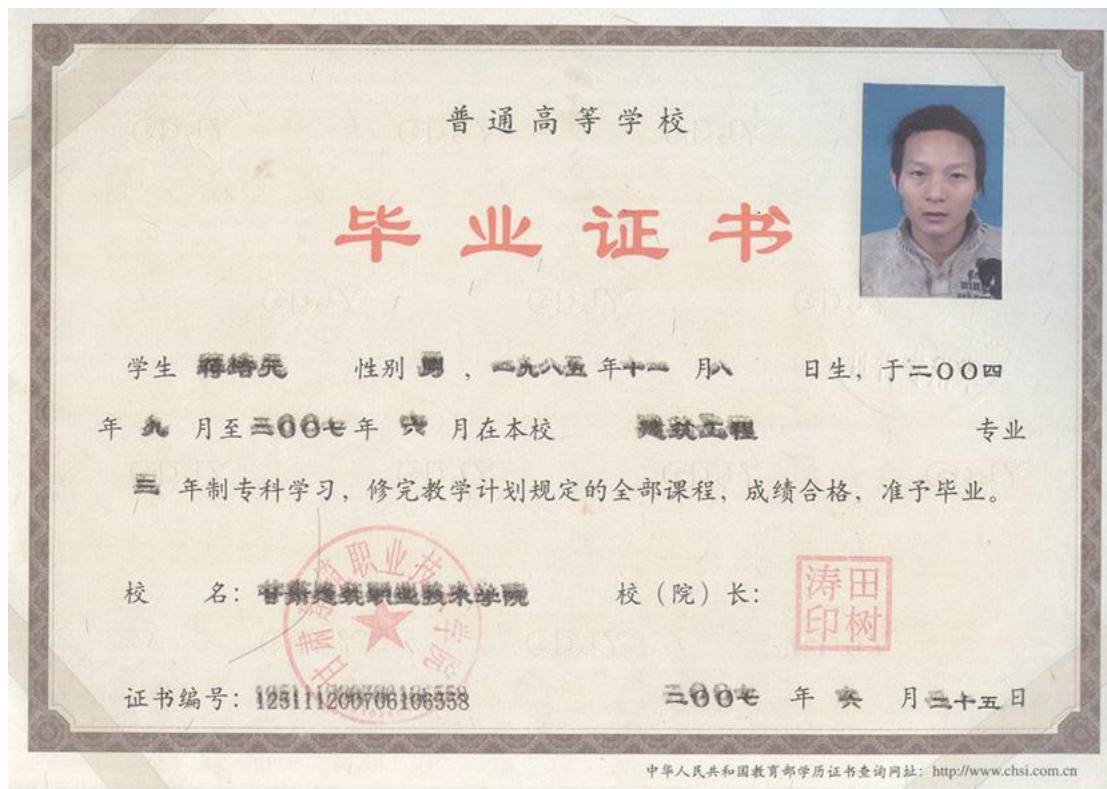 普通高等学校
毕业证书
学生 蒋培元 性别 男 ，一九八五年十一 月八 日生，于二〇〇四
年 九 月至二〇〇七年 六 月在本校 建筑工程 专业
三 年制专科学习，修完教学计划规定的全部课程，成绩合格，准予毕业。
校 名：甘肃建筑职业技术学院 校（院）长：
田树涛印
甘肃建筑职业技术学院
证书编号： 二〇〇七 年 六 月二十五日
中华人民共和国教育部学历证书查询网址：http://www.chsi.com.cn